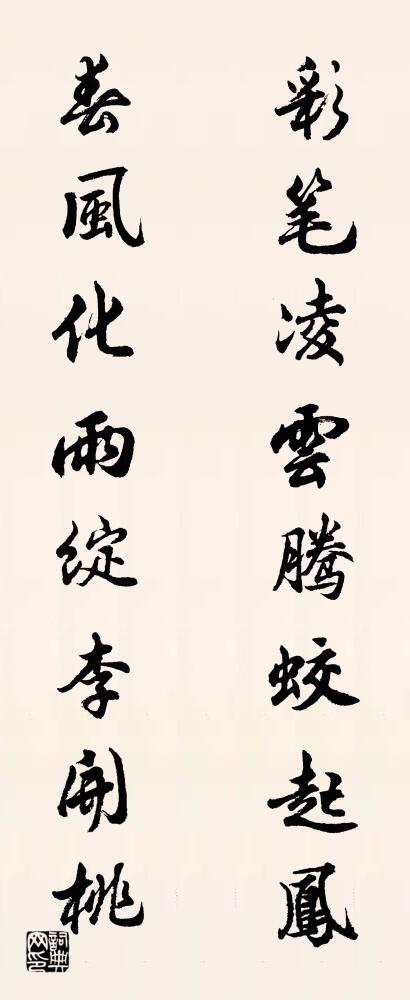 彩笔凌雲腾蛟起鳳
春風化雨綻李開桃
詞典网印